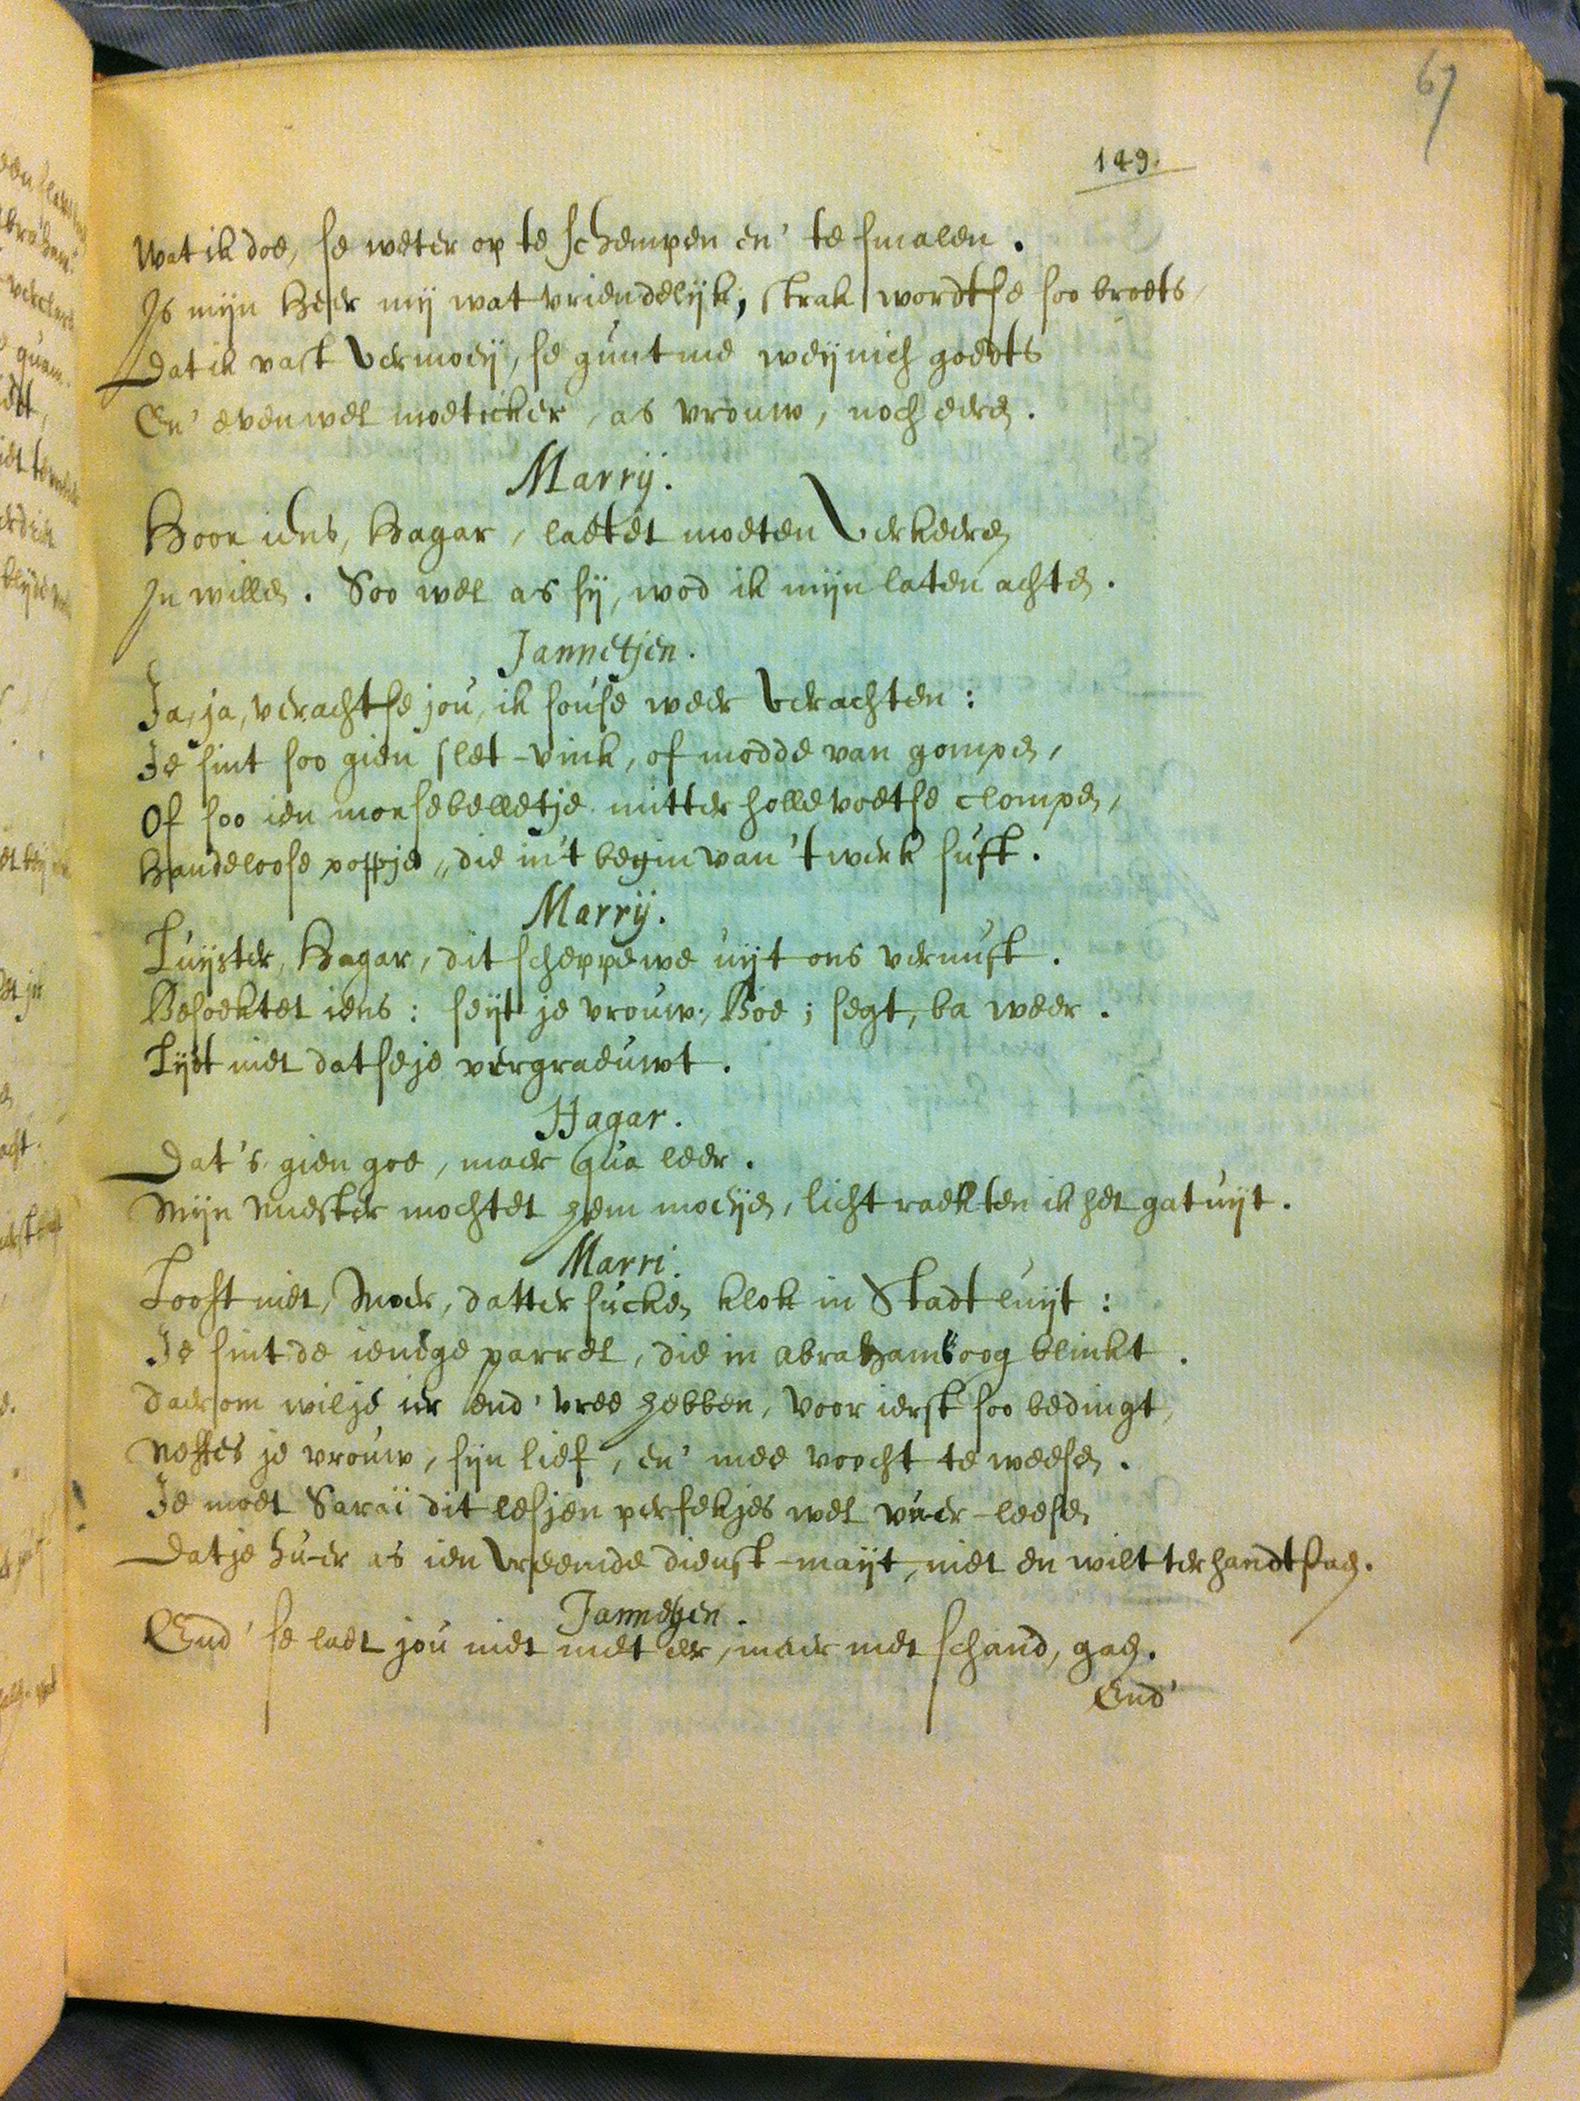 67
149.
Wat ik doe, se weter op te schempen en' te smalen.
Is mijn Heer mij wat vriendelijk, strak wordtse soo broets,
Dat ik vast vermoeij, se gunt me weijnich goedts
En' evenwel moet icker, as vrouw, noch eeren.
Marrij.
Hoor iens, Hagar, laetet moeten verkeeren
In willen. Soo wel as sij, wod ik mijn laten achten.
Jannetjen.
Ja, ja, verachtse jou, ik souse weer verachten:
Je sint soo gien slet-vink, of modde van gompen,
Of soo ien morsebelletje mitter holle voetse clompen,
Handeloose popje, die in't begin van't werk suft.
Marrij.
Luijster, Hagar, dit scheppewe uijt ons vernuft.
Besoektet iens: seijt je vrouw, Boe; segt, ba weer.
Lijdt niet datseje vergraeuwt.
Hagar.
Dat's gien goe, maer qua leer.
Mijn Miester mochtet hem moeijen, licht raekten ik het gat uijt.
Marri.
Looft niet, Moer, datter sucken klok in Stadt luijt:
Je sint de ienige parrel, die in Abrahams oog blinkt.
Daerom wilje ier end' vree hebben, voor ierst soo bedingt,
Neffes je vrouw, sijn lief, en' mee voocht te weesen.
Je moet Saraï dit lesjen perfekjes wel vuer-leesen
Datje hu-er as ien vreemde dienst-maijt, niet en wilt ter handt staen.
Jannetjen.
End' se laet jou niet met eer, maer met schand, gaen.
End'